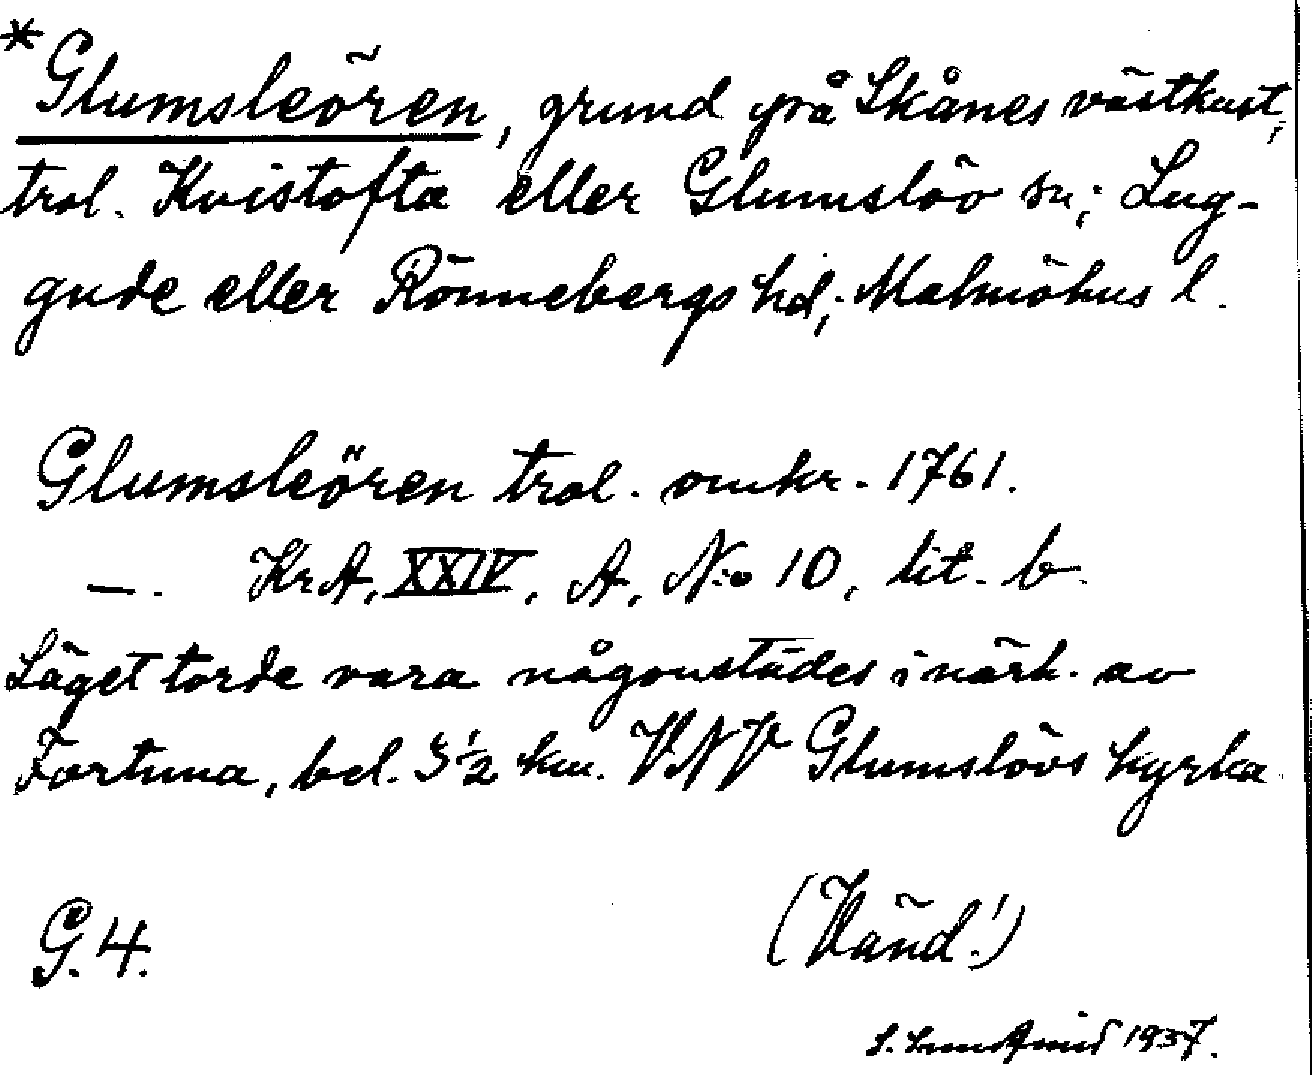 *Glumsleören, grund på Skånes västkust,
trol. Kvistofta eller Glumslöv sn; Lug-
gude eller Rönnebergs hd; Malmöhus l.
Glumsleören trol. omkr. 1761.
—. KrA, XXIV, A, N:o 10, lit. b.
Läget torde vara någonstädes i närh. av
Fortuna, bel. 3½ km. VNV Glumslövs kyrka.
G. 4.
(Vänd!)
S. 1937.